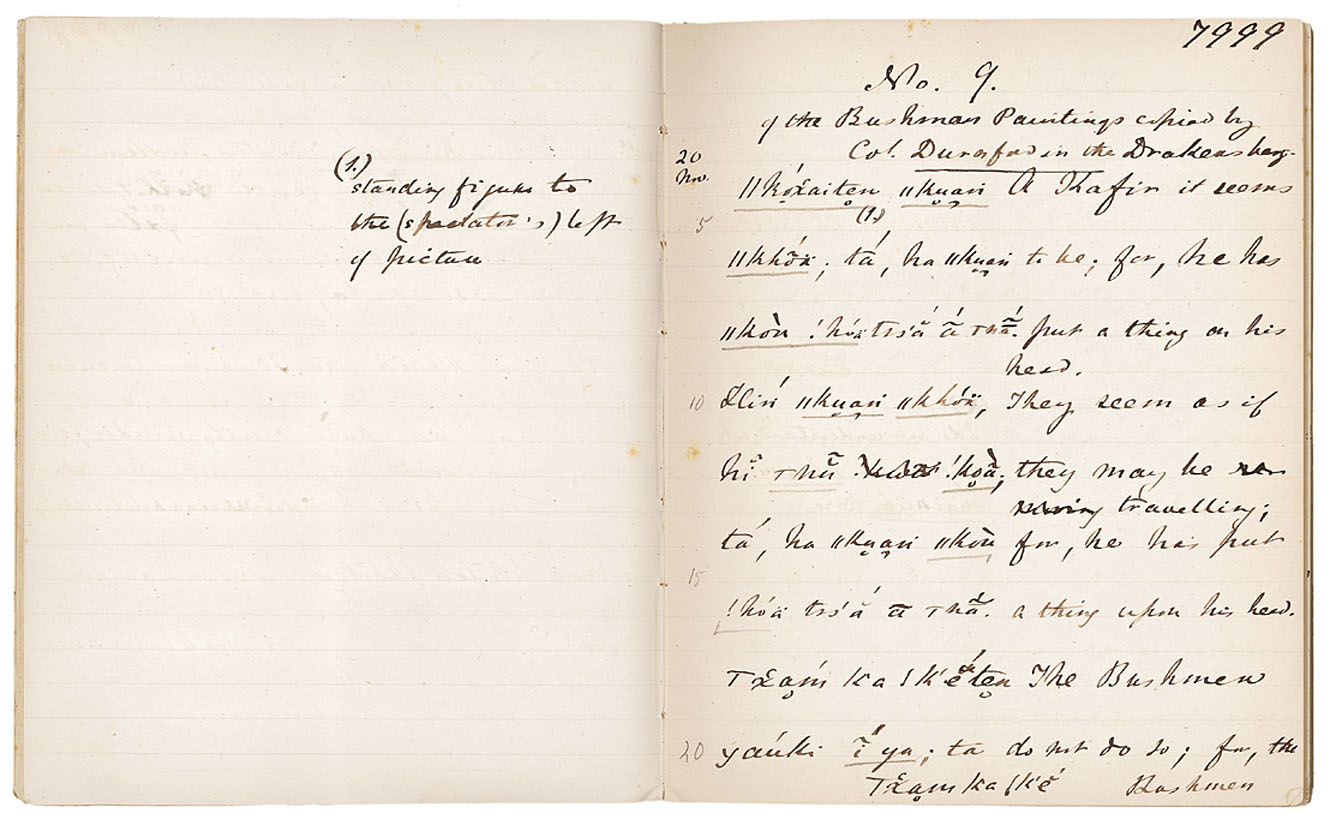 (1.)
standing figure to
the (spectator's) left
of picture
7999
No. 9.
of the Bushman Paintings copied by
Col. Durnford in the Drakensberg.
20
Nov.
ǁkuari A Kafir it seems
(1.)
5
ǁkhóä; tá, ha ǁkuari to be; for, he has
ǁkòn !hóä á put a thing on his
head.
10
ǁkuari ǁkhóä, They seem as if
!koà; they may be
travelling;
tá, ha ǁkuari ǁkòn for, he has put
15
!hóä a thing upon his head.
ka !k'é̆ten The Bushmen
20
yaúki ĭ́ ya; ta do not do so; for, the
ka !ké Bushmen